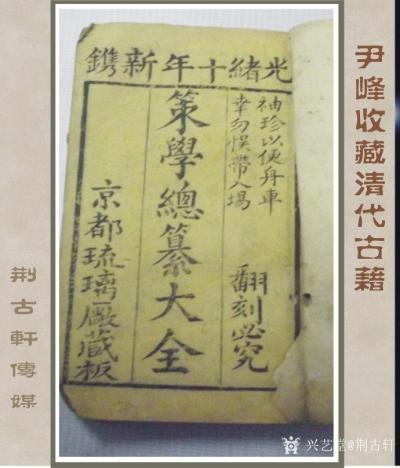 尹峰收藏清代古籍
光緒十年新鐫
袖珍以便舟車
幸勿悮帶入場
翻刻必究
策學總纂大全
京都琉璃厰藏板
荆古軒傳媒
兴艺堂@荆古轩